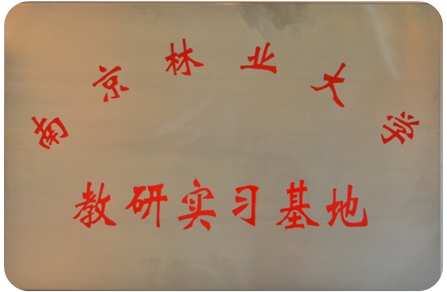 南京林业大学
教研实习基地